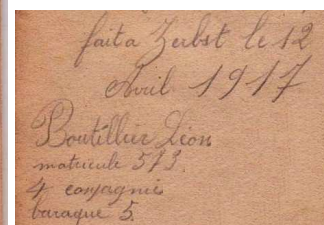 fait a Zerbst le 12
Avril 1917
Boutillier Léon
matricule 573
4 compagnie
baraque 5.